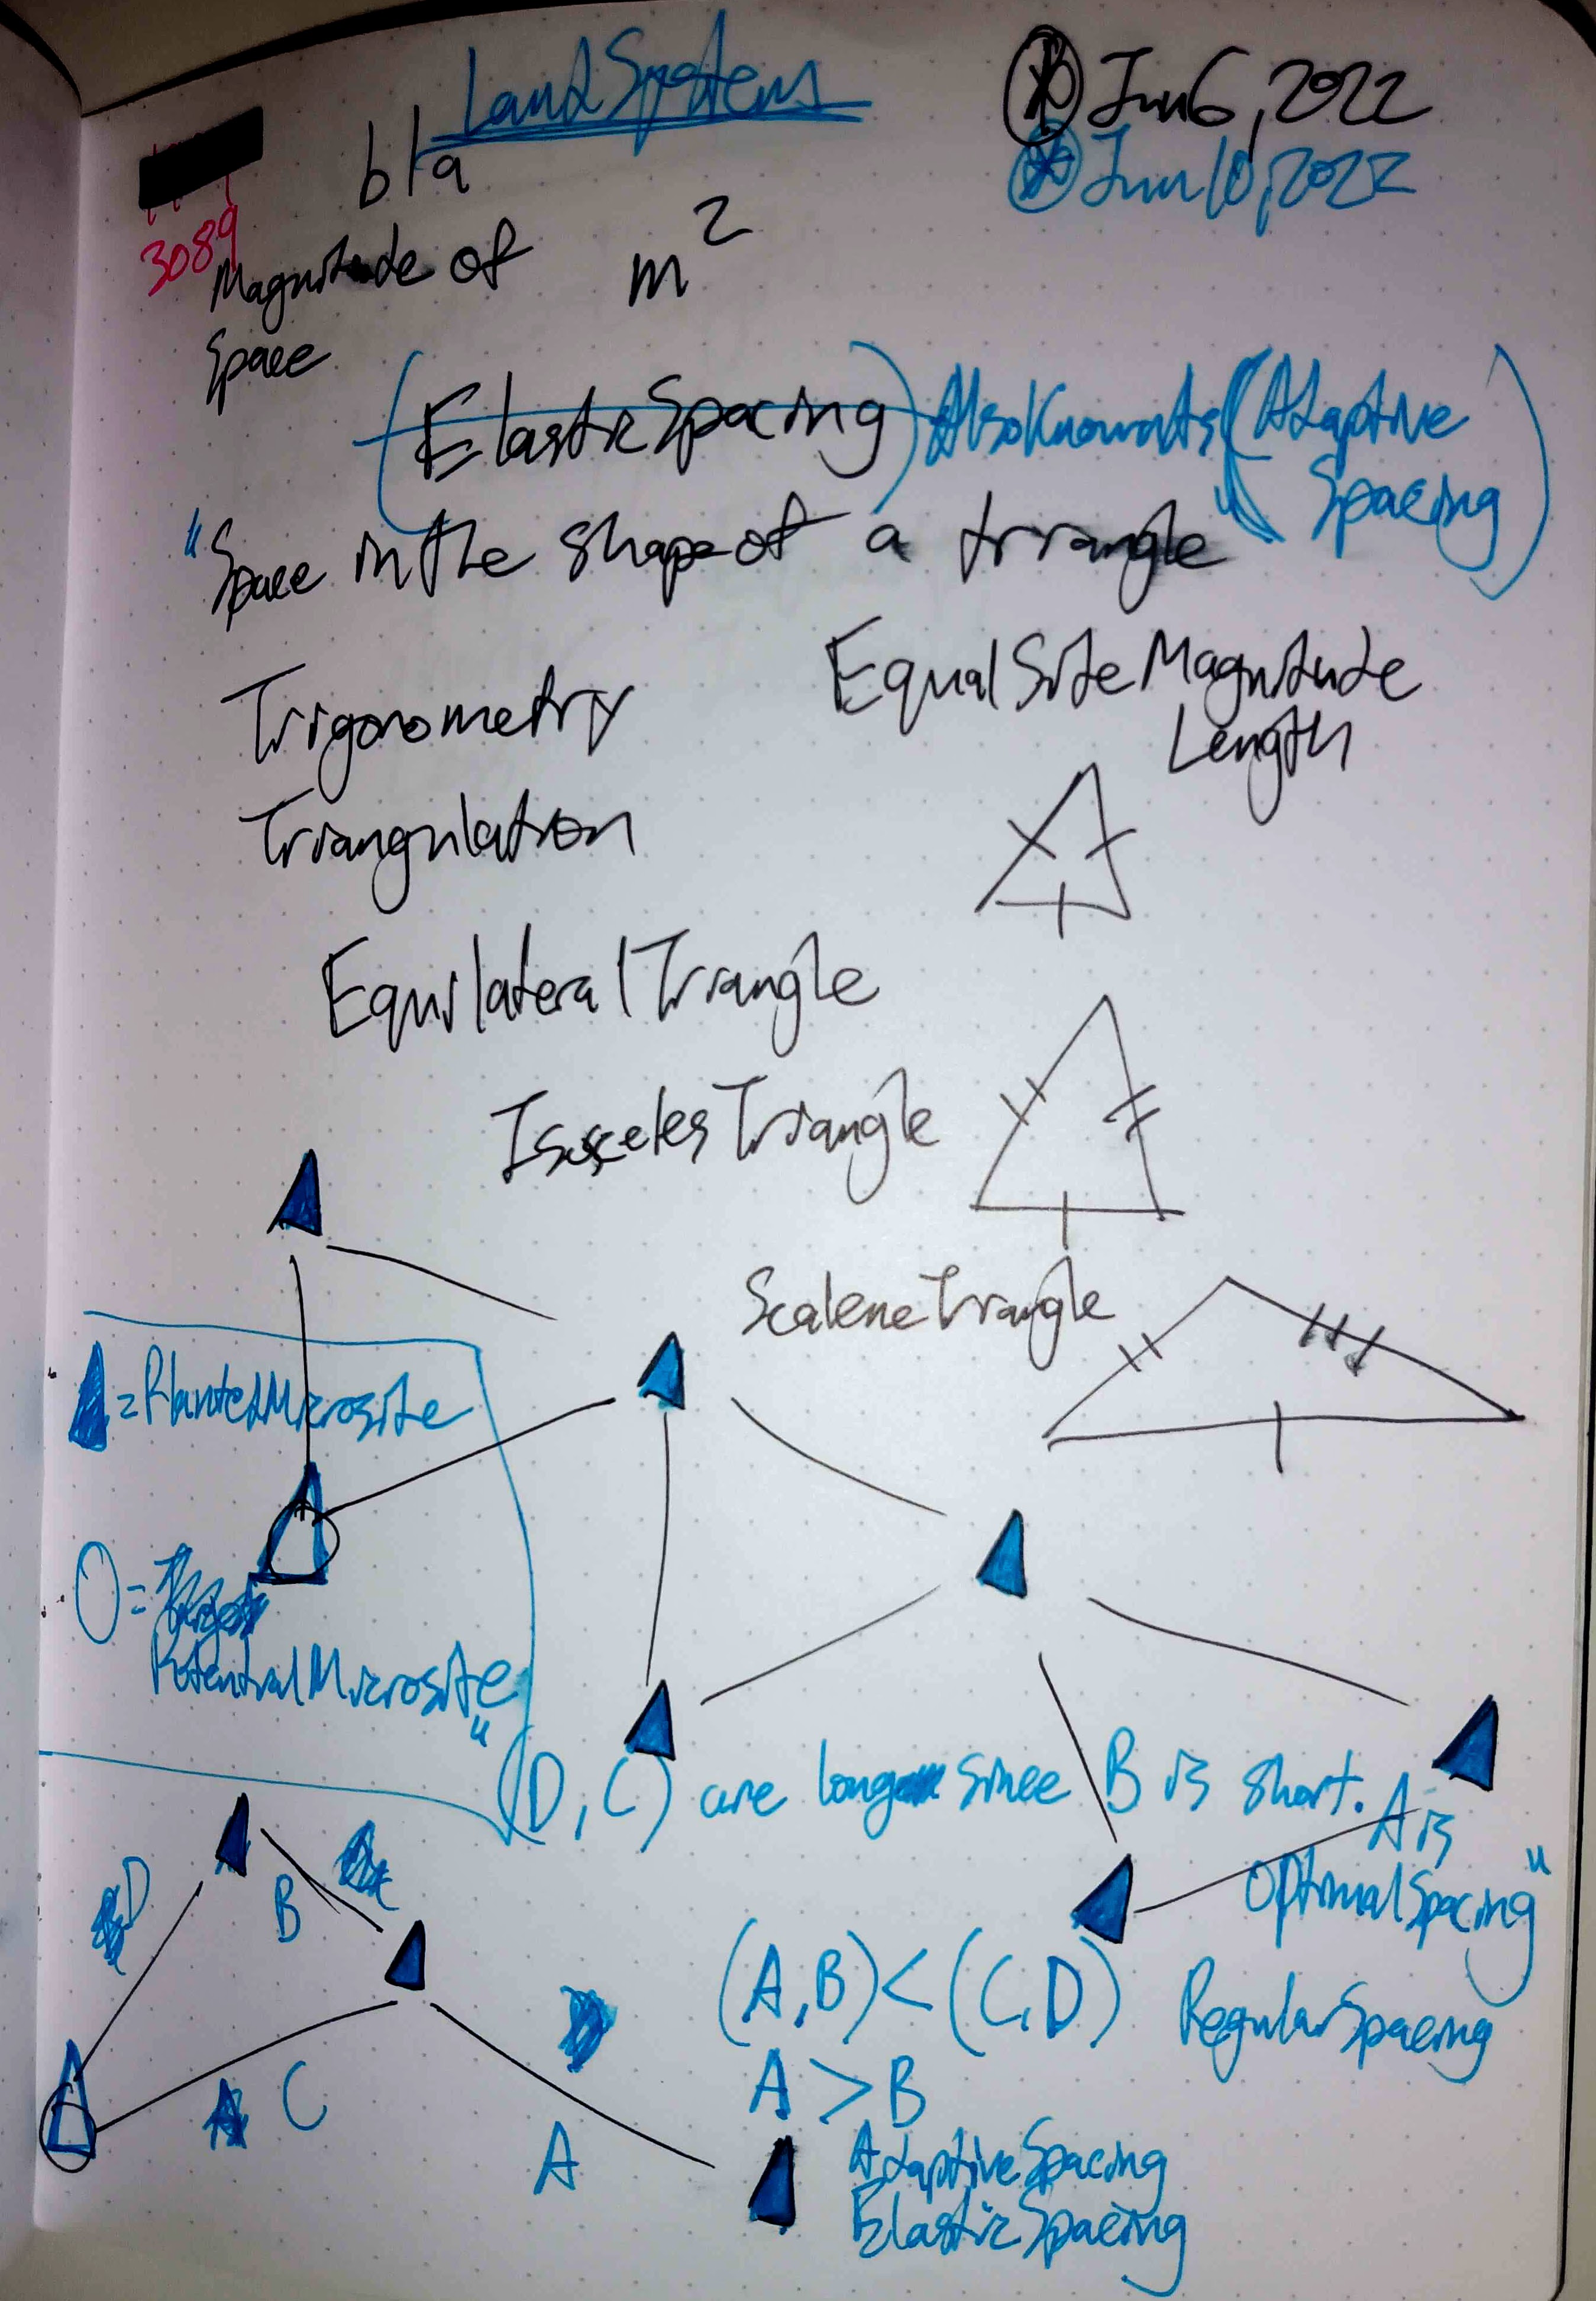 LandSystems
Jun 6, 2022
Jun 10, 2022
bla
3089
Magnitude of m²
Space
(ElasticSpacing) AlsoKnownAs (Adaptive
Spacing)
"Space in the shape of a triangle"
Trigonometry
EqualSiteMagnitude
Length
Triangulation
EquilateralTriangle
IsoscelesTriangle
ScaleneTriangle
= PlantedMicrosite
O =
PotentialMicrosite
"(D, C) are long since B is short. A is
OptimalSpacing"
D
B
C
A
(A, B) < (C, D)
RegularSpacing
A > B
AdaptiveSpacing
ElasticSpacing